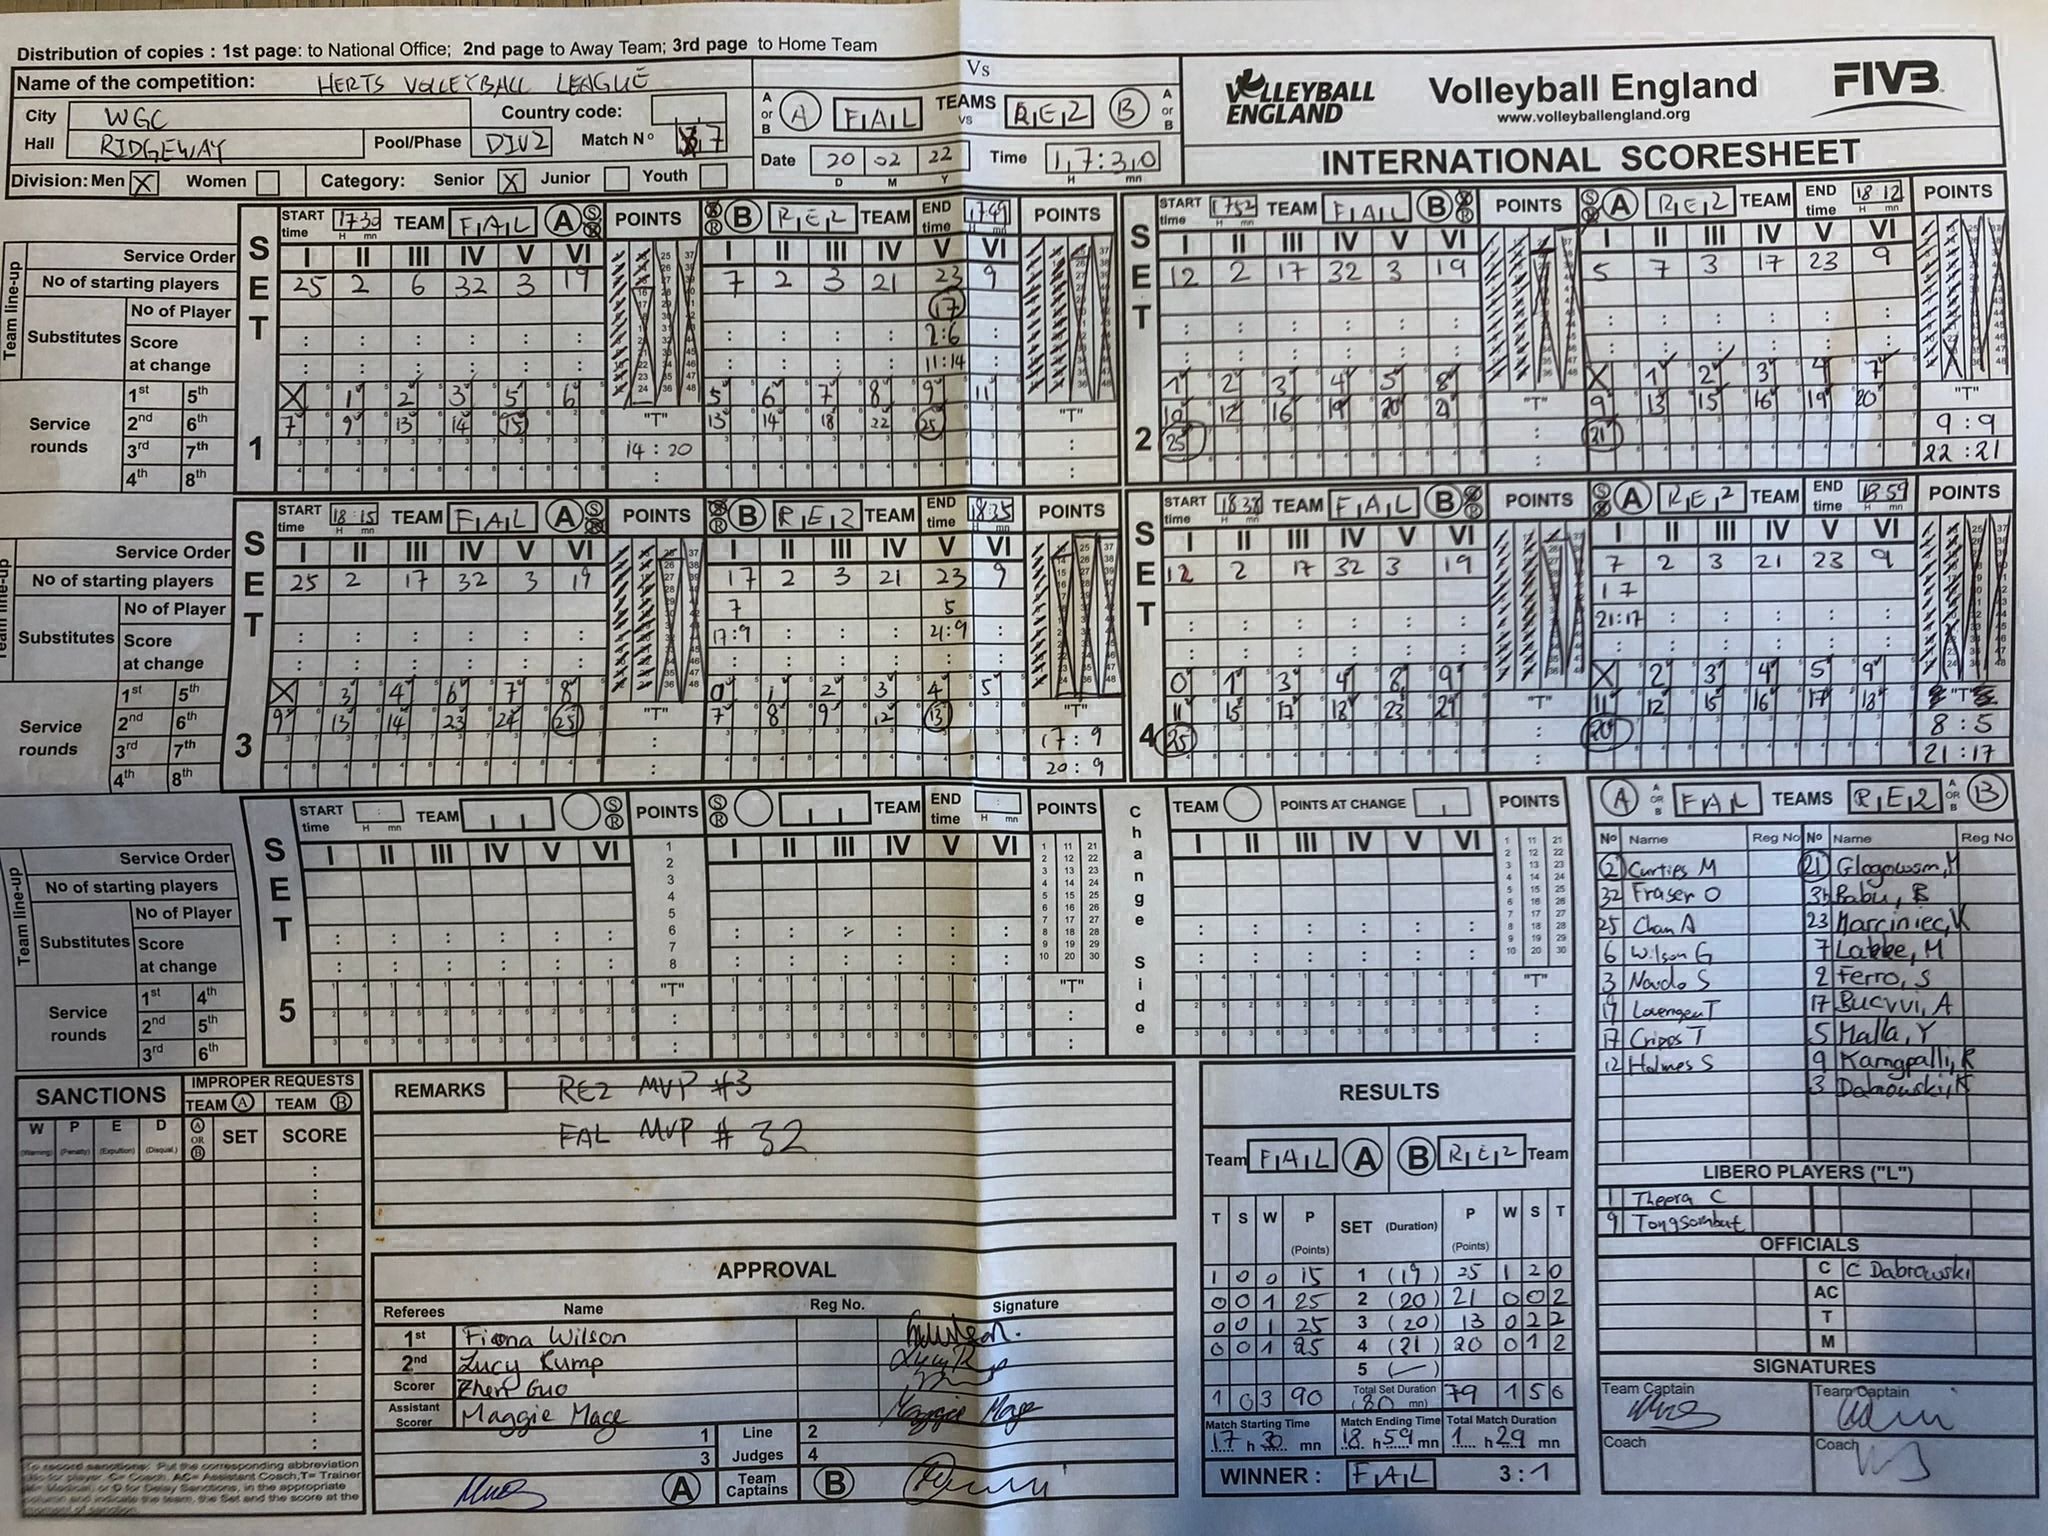 Distribution of copies : 1st page: to National Office; 2nd page to Away Team; 3rd page to Home Team
Name of the competition: HERTS VOLLEYBALL LEAGUE
City WGC Country code:
Hall RIDGEWAY Pool/Phase DIV2 Match Nº 7
Division: Men X Women Category: Senior X Junior Youth
Vs
A or B A FAL TEAMS vs RE2 B A or B
Date 20 02 22 Time 17:30
D M Y H mn
VOLLEYBALL ENGLAND Volleyball England FIVB
www.volleyballengland.org
INTERNATIONAL SCORESHEET
SET 1
START time 17 30 TEAM FAL A S R POINTS S R B RE2 TEAM END time 17 49 POINTS
Team line-up
Service Order I II III IV V VI I II III IV V VI
No of starting players 25 2 6 32 3 19 7 2 3 21 23 9
Substitutes No of Player 17
Score at change 2:6
11:14
Service rounds
1st 5th X 1 2 3 5 6 5 6 7 8 9 11
2nd 6th 7 9 13 14 15 "T" 13 14 18 22 25 "T"
3rd 7th 14 : 20
4th 8th
SET 2
START time 17 52 TEAM FAL B S R POINTS S R A RE2 TEAM END time 18 12 POINTS
I II III IV V VI I II III IV V VI
12 2 17 32 3 19 5 7 3 17 23 9
1 2 3 4 5 8 X 1 2 3 4 7
10 12 16 19 20 21 "T" 9 13 15 16 19 20 "T"
25 21 9 : 9
22 : 21
SET 3
START time 18 15 TEAM FAL A S R POINTS S R B RE2 TEAM END time 18 35 POINTS
Team line-up
Service Order I II III IV V VI I II III IV V VI
No of starting players 25 2 17 32 3 19 17 2 3 21 23 9
Substitutes No of Player 7 5
Score at change 17:9 21:9
Service rounds
1st 5th X 3 4 6 7 8 0 1 2 3 4 5
2nd 6th 9 13 14 23 24 25 "T" 7 8 9 12 13 "T"
3rd 7th 17 : 9
4th 8th 20 : 9
SET 4
START time 18 38 TEAM FAL B S R POINTS S R A RE2 TEAM END time 18 59 POINTS
I II III IV V VI I II III IV V VI
12 2 17 32 3 19 7 2 3 21 23 9
17
21:17
0 1 3 4 8 9 X 2 3 4 5 9
11 15 17 18 23 24 "T" 11 12 15 16 17 18 "T"
25 20 8 : 5
21 : 17
SET 5
START time H mn TEAM S R POINTS S R TEAM END time H mn POINTS
Team line-up
Service Order I II III IV V VI I II III IV V VI
No of starting players
Substitutes No of Player
Score at change
Service rounds
1st 4th "T" "T"
2nd 5th
3rd 6th
Change Side
TEAM POINTS AT CHANGE POINTS
I II III IV V VI
"T"
A A OR B FAL TEAMS RE2 A OR B B
Nº Name Reg No Nº Name Reg No
2 Curties M 21 Glogowsm, M
32 Fraser O Babu, B
25 Chan A 23 Marciniec, K
6 Wilson G 7 Labbe, M
3 Navdo S 2 Ferro, S
19 Lavengen T 17 Bucvvi, A
17 Cripps T 5 Malla, Y
12 Holmes S 9 Karngpalli, R
3 Dabrowski, K
LIBERO PLAYERS ("L")
1 Theera C
9 Tongsombut
OFFICIALS
C C Dabrowski
AC
T
M
SIGNATURES
Team Captain Team Captain
Coach Coach
SANCTIONS IMPROPER REQUESTS
TEAM A TEAM B
W P E D A OR B SET SCORE
(Warning) (Penalty) (Expultion) (Disqual.)
To record sanctions: Put the corresponding abbreviation
No for player, C= Coach, AC= Assistant Coach, T= Trainer
M= Medical, or D for Delay Sanctions, in the appropriate
column and indicate the team, the Set and the score at the
moment of sanction.
REMARKS RE2 MVP #3
FAL MVP # 32
APPROVAL
Referees Name Reg No. Signature
1st Fiona Wilson
2nd Lucy Rump
Scorer Zhen Guo
Assistant Scorer Maggie Mage Maggie Mage
1 Line 2
3 Judges 4
A Team Captains B
RESULTS
Team FAL A B RE2 Team
T S W P (Points) SET (Duration) P (Points) W S T
1 0 0 15 1 (19) 25 1 2 0
0 0 1 25 2 (20) 21 0 0 2
0 0 1 25 3 (20) 13 0 2 2
0 0 1 25 4 (21) 20 0 1 2
5 (—)
1 0 3 90 Total Set Duration (80 mn) 79 1 5 6
Match Starting Time Match Ending Time Total Match Duration
17 h 30 mn 18 h 59 mn 1 h 29 mn
WINNER : FAL 3 : 1